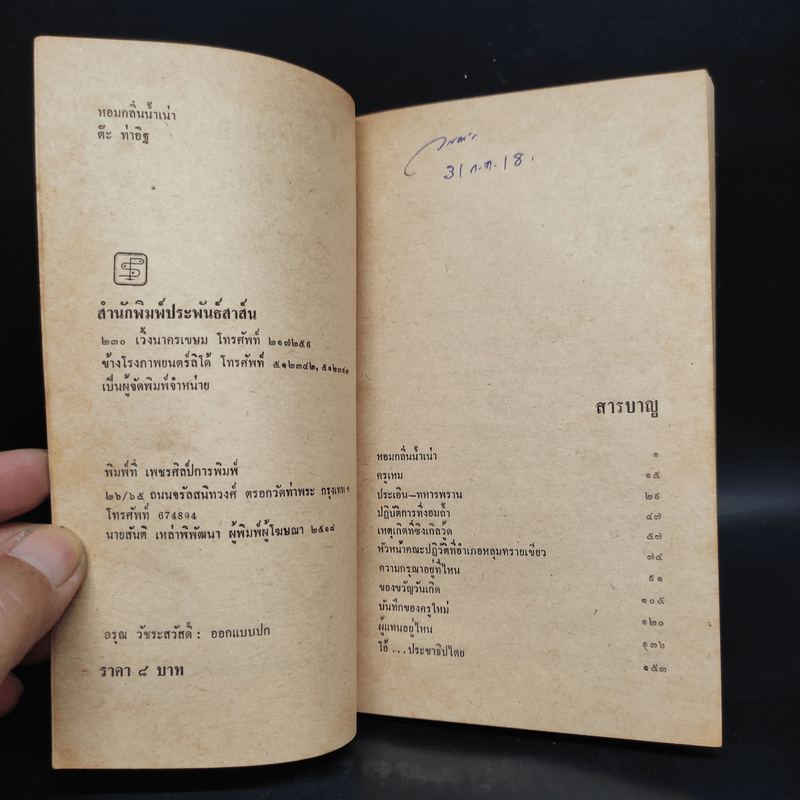 หอมกลิ่นน้ำเน่า
ต๊ะ ท่าอิฐ
สำนักพิมพ์ประพันธ์สาส์น
๒๓๐ เวิ้งนาครเขษม โทรศัพท์ ๒๑๗๒๕๙
ข้างโรงภาพยนตร์ลิโด้ โทรศัพท์ ๕๑๒๓๔๒, ๕๑๒๓๔๑
เป็นผู้จัดพิมพ์จำหน่าย
พิมพ์ที่ เพชรศิลป์การพิมพ์
๒๖/๖๕ ถนนจรัลสนิทวงศ์ ตรอกวัดท่าพระ กรุงเทพ ฯ
โทรศัพท์ 674894
นายสันติ เหล่าพิพัฒนา ผู้พิมพ์ผู้โฆษณา ๒๕๑๘
อรุณ วัชระสวัสดิ์ : ออกแบบปก
ราคา ๘ บาท
31 ก.ค. 18.
สารบาญ
หอมกลิ่นน้ำเน่า ๑
ครูเหม ๑๕
ประเอิน–ทหารพราน ๒๙
ปฏิบัติการที่งอมถ้ำ ๔๗
เหตุเกิดที่ซิงเกิลวู้ด ๕๗
หัวหน้าคณะปฏิวัติที่อำเภอหลุมทรายเขียว ๗๔
ความกรุณาอยู่ที่ไหน ๙๑
ของขวัญวันเกิด ๑๐๕
บันทึกของครูใหม่ ๑๒๐
ผู้แทนอยู่ไหน ๑๓๖
โอ้...ประชาธิปไตย ๑๕๓